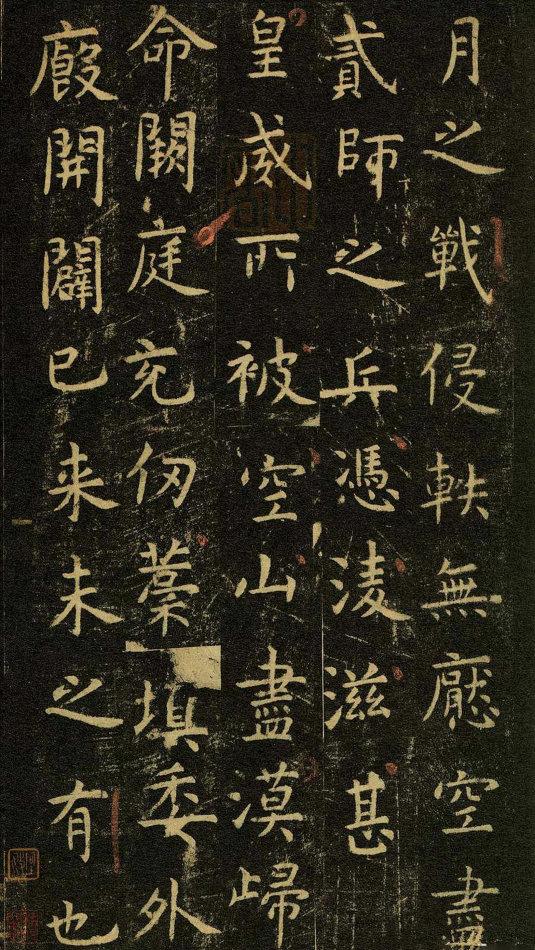 月之戰侵軼無懕空盡
貳師之兵憑淩滋甚
皇威所被空山盡漠歸
命闕庭充仞藳填委外
廄開闢已来未之有也